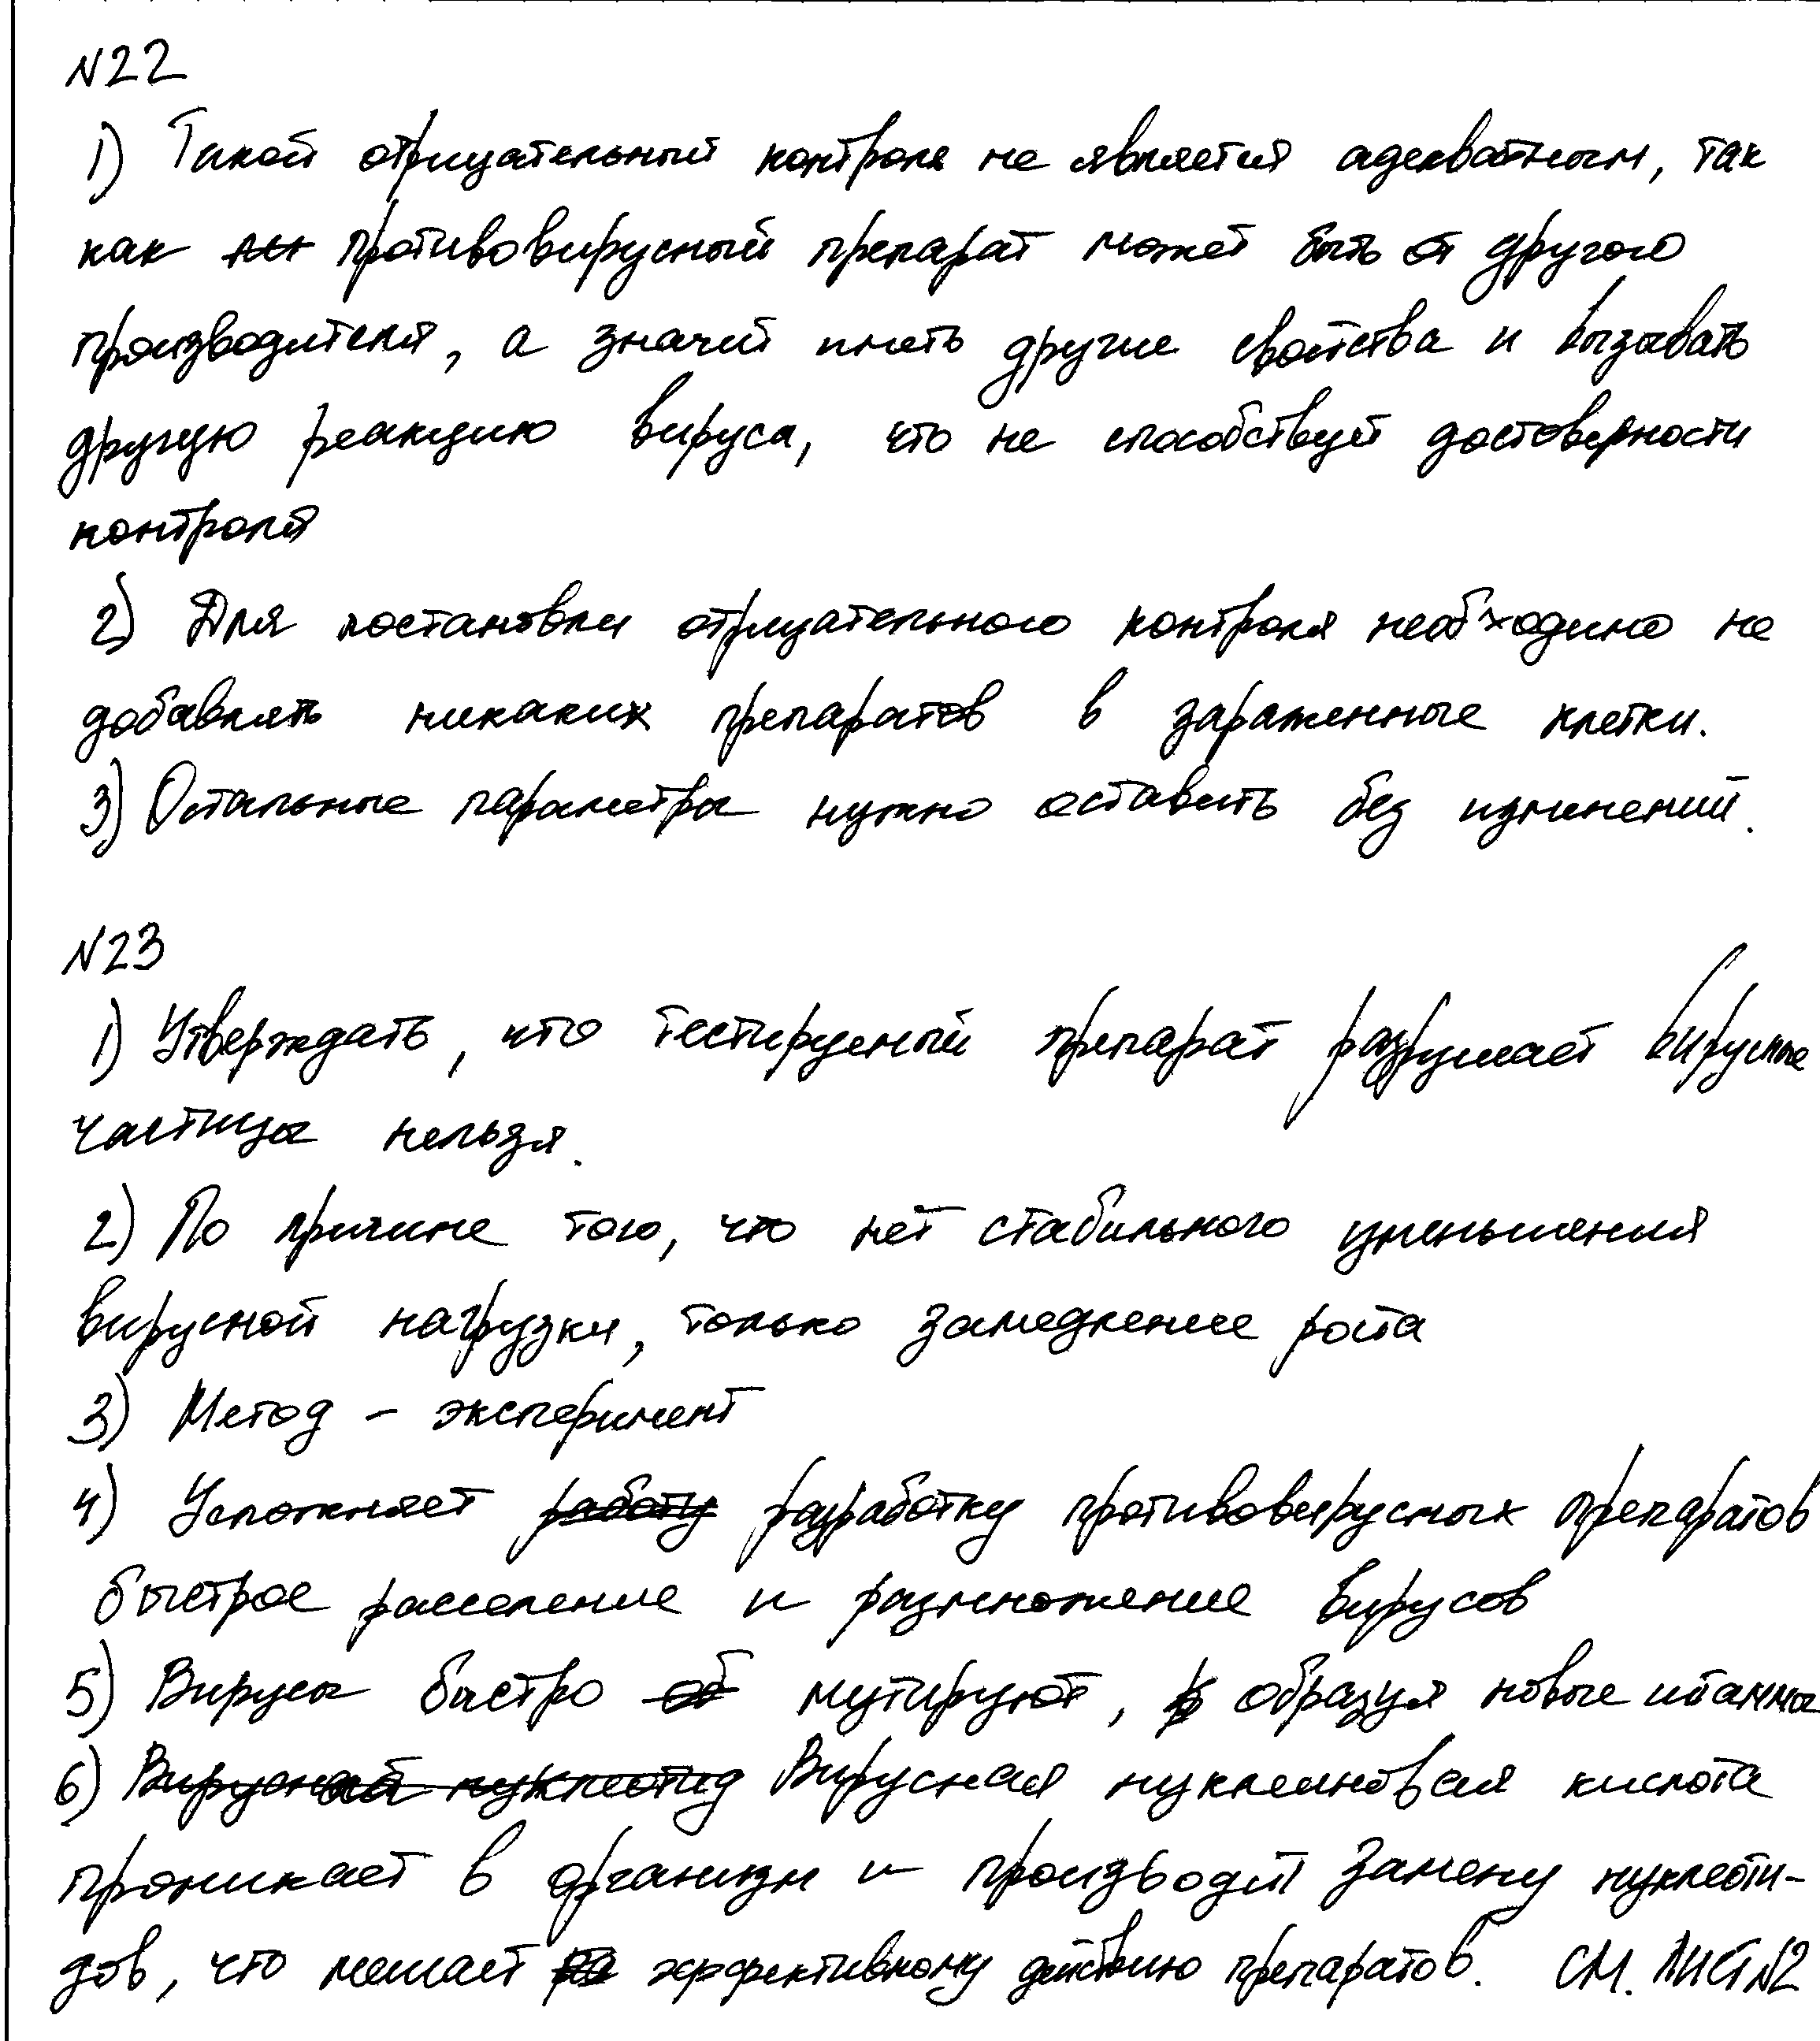 №22
1) Такой отрицательный контроль не является адекватным, так
как противовирусный препарат может быть от другого
производителя, а значит иметь другие свойства и вызывать
другую реакцию вируса, что не способствует достоверности
контроля
2) Для постановки отрицательного контроля необходимо не
добавлять никаких препаратов в зараженные клетки.
3) Остальные параметры нужно оставить без изменений.
№23
1) Утверждать, что тестируемый препарат разрушает вирусные
частицы нельзя.
2) По причине того, что нет стабильного уменьшения
вирусной нагрузки, только замедление роста
3) Метод – эксперимент
4) Усложняет работу разработку противовирусных препаратов
быстрое расселение и размножение вирусов
5) Вирусы быстро об мутируют, образуя новые штаммы
6) Вирусный нуклеотид Вирусная нуклеиновая кислота
проникает в организм и производит замену нуклеоти-
дов, что мешает эффективному действию препаратов. СМ. ЛИСТ №2